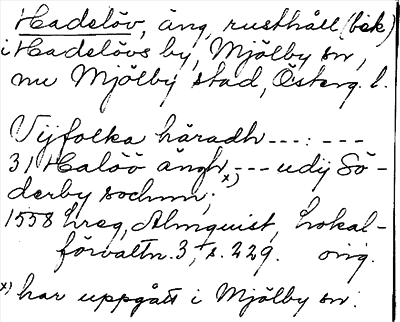 Hadelöv, äng, rusthåll (bek)
i Hadelövs by, Mjölby sn,
nu Mjölby stad, Österg. l.
Vijfolka häradh ---:---
31 Haloö ängh x) --- udij Sö-
derby sochnn;
1558 hreg, Almquist, Lokal-
förvaltn. 3, s. 229. orig.
x) har uppgått i Mjölby sn.